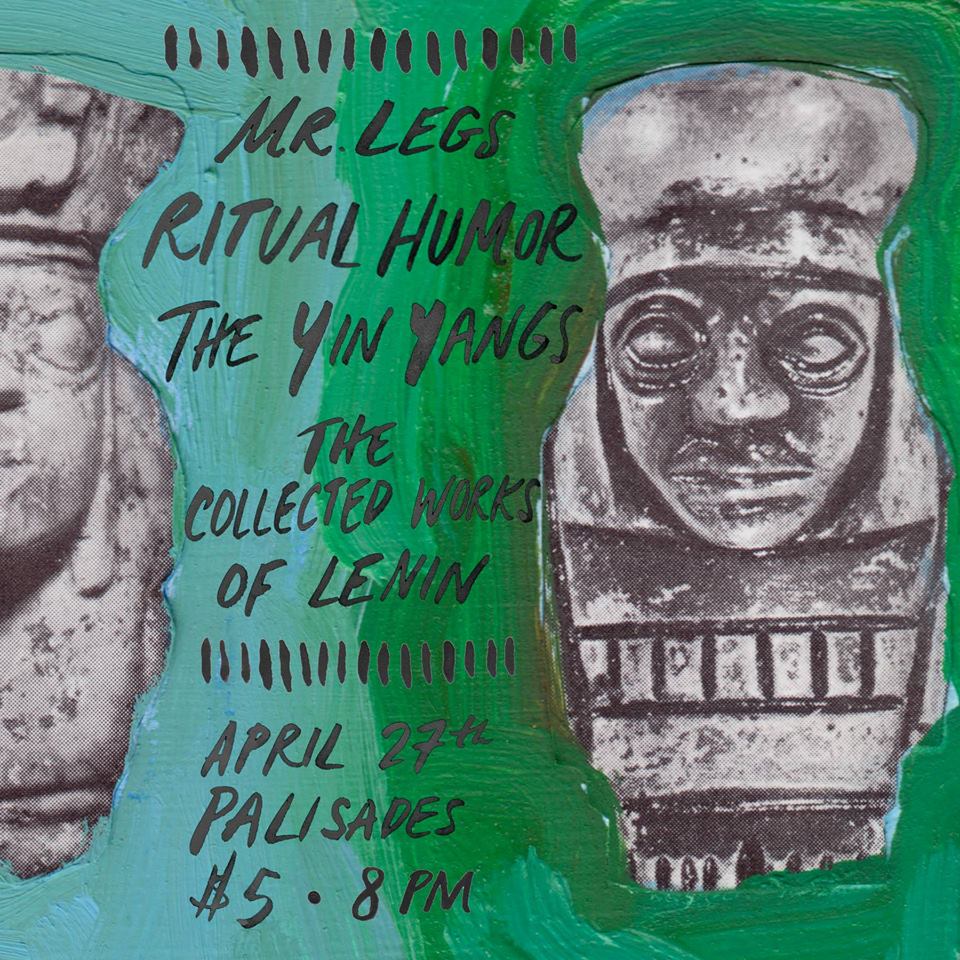 MR. LEGS
RITUAL HUMOR
THE YIN YANGS
THE
COLLECTED WORKS
OF LENIN
APRIL 27th
PALISADES
$5 • 8 PM